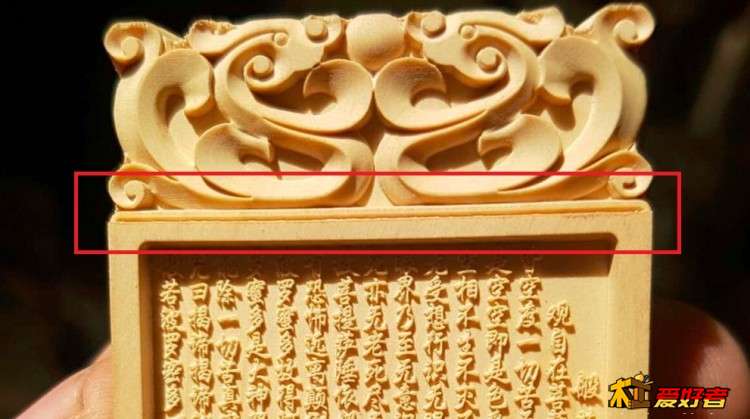 般
观自在菩
皆空度一切苦
是空空即是色
空相不生不灭
无受想行识无
界乃至无意
无亦无老死尽
菩提萨埵依
有恐怖远离颠
罗蜜多故得
蜜多是大神
能除一切苦真
曰揭谛揭谛
若波罗蜜多
木工爱好者